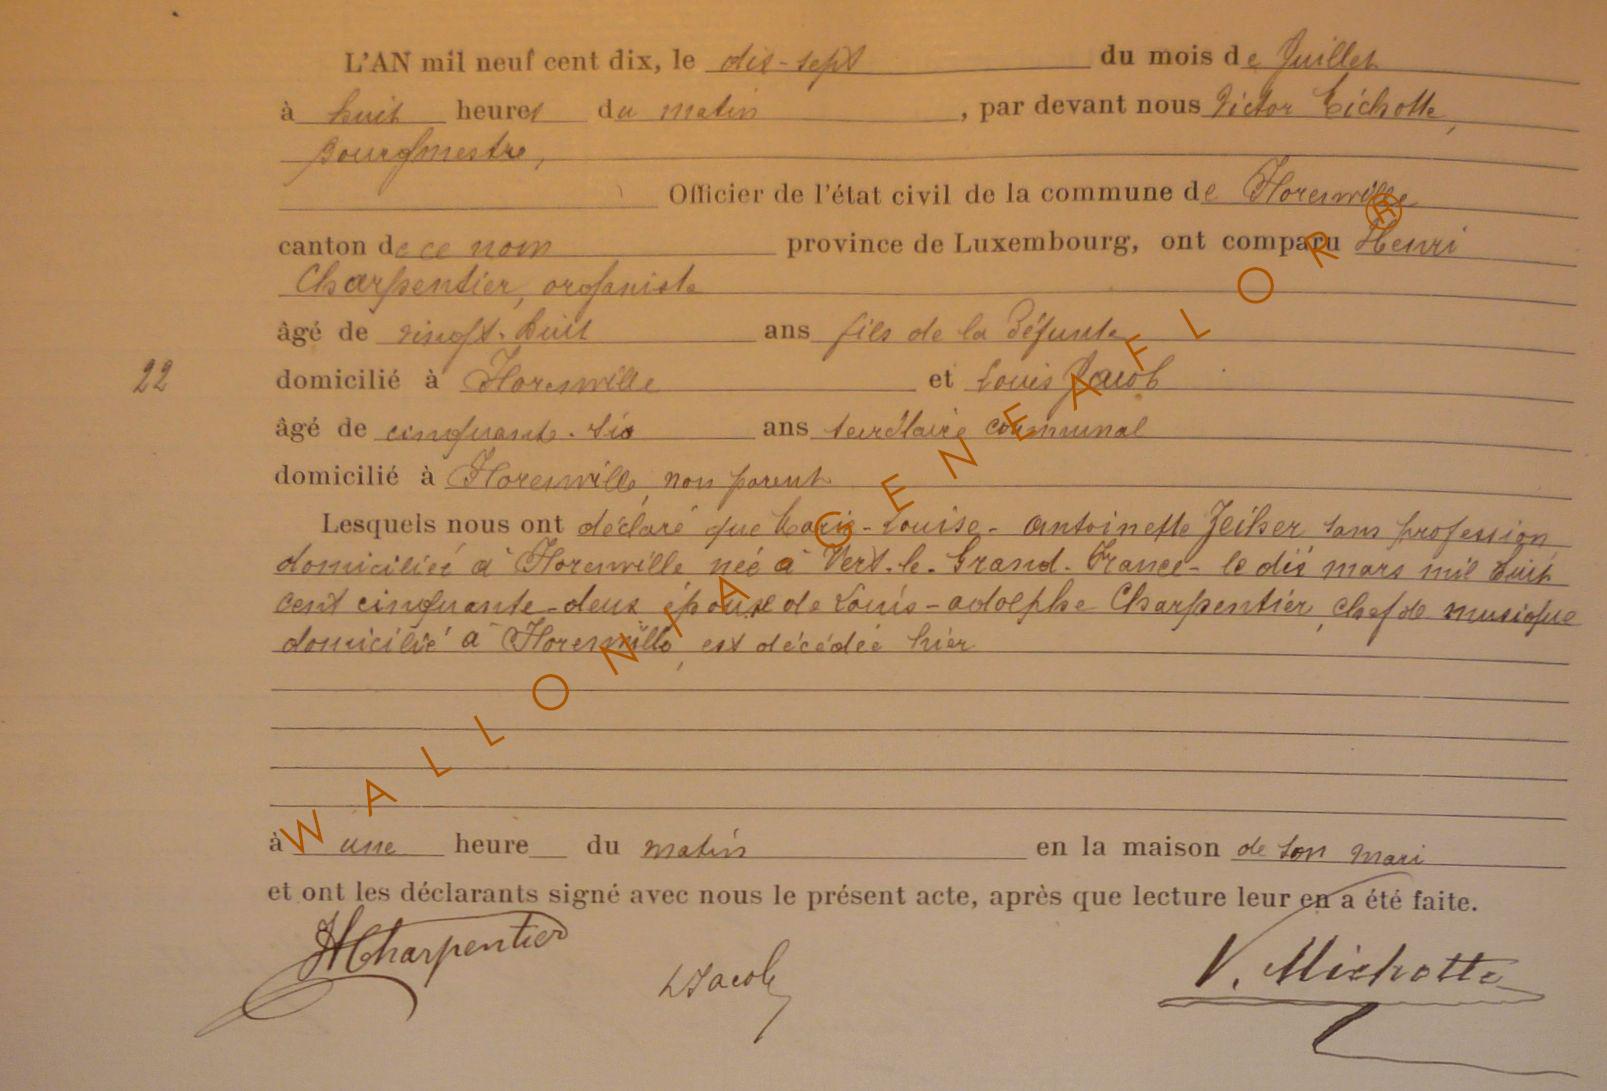 L'AN mil neuf cent dix, le dix-sept du mois de Juillet
à huit heures du matin, par devant nous Victor Michotte,
Bourgmestre,
Officier de l'état civil de la commune de Florenville
canton de ce nom province de Luxembourg, ont comparu Henri
Charpentier, organiste
âgé de vingt-huit ans fils de la défunte
22
domicilié à Florenville et Louis Jacob
âgé de cinquante-six ans secrétaire communal
domicilié à Florenville, non parent
Lesquels nous ont déclaré que Marie-Louise-Antoinette sans profession
domiciliée à Florenville née à Vert-le-Grand-France-le dix mars mil huit
cent cinquante-deux épouse de Louis-adolphe Charpentier, chef de musique
domicilié à Florenville, est décédée hier
à une heure du matin en la maison de son mari
et ont les déclarants signé avec nous le présent acte, après que lecture leur en a été faite.
HCharpentier
LJacob
V. Michotte
WALLONIA GENEAFLOR ®